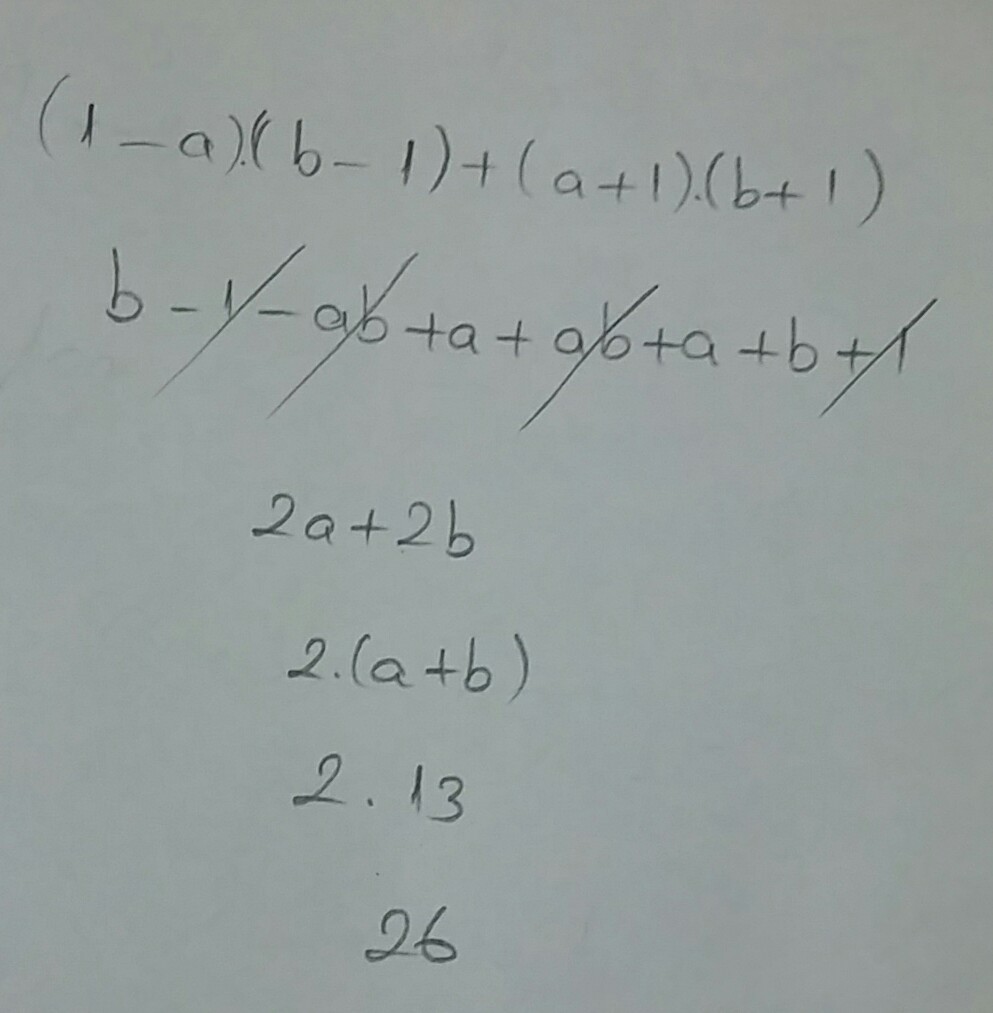 (1-a).(b-1)+(a+1).(b+1)
b-1-ab+a+ab+a+b+1
2a+2b
2.(a+b)
2.13
26